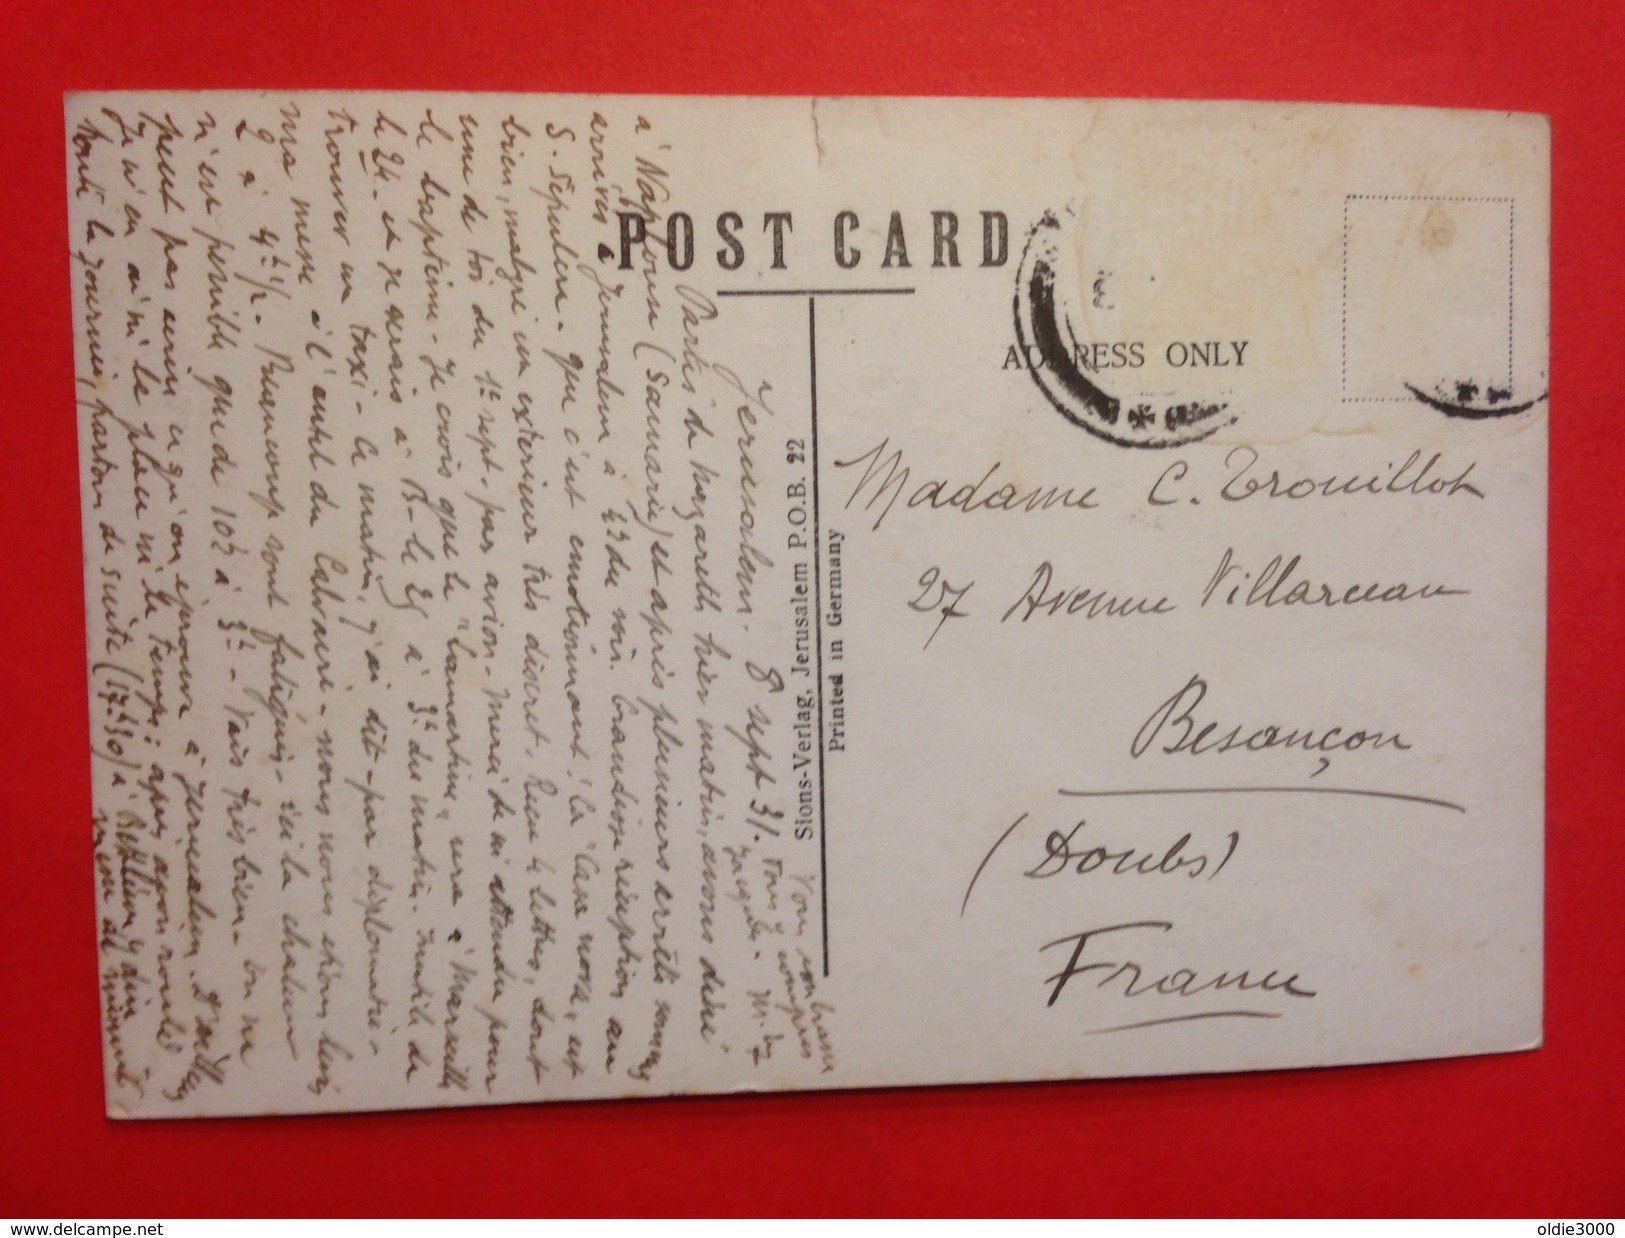 POST CARD
ADDRESS ONLY
Madame C. Trouillot
27 Avenue Villarceau
Besançon
(Doubs)
France
Sions-Verlag, Jerusalem P.O.B. 22
Printed in Germany
Jerusalem. 8 sept 31.
Partis de Nazareth hier matin, avons dîné
à Naplouse (Samarie) et après plusieurs arrêts sommes
arrivés à Jerusalem à 4h du soir. Grandiose réception au
S. Sépulcre - que c'est émotionnant! la "Casa nova" est
bien, malgré un extérieur très discret. Reçu 2 lettres, dont
une de toi du 1er sept. par avion. Merci de m'attendre pour
le baptême - Je crois que le "Lamartine" sera à Marseille
le 24. et je serais à B- le 25 à 3h du matin. Inutile de
trouver un taxi - Ce matin, j'ai dit - par diplomatie -
ma messe à l'autel du Calvaire - nous nous étions levés
à 4h 1/2. Beaucoup sont fatigués - ici la chaleur
n'est pénible que de 10h à 3h - Vais très bien - On ne
peut pas écrire ce qu'on éprouve à Jerusalem. D'ailleurs
je n'en ai ni la place ni le temps: après avoir
la journée, partons de suite (17h30) à Bethléem y dire
messe de minuit
Vous embrasse
tous y compris
Jacqueline. M.
oldie3000
www.delcampe.net